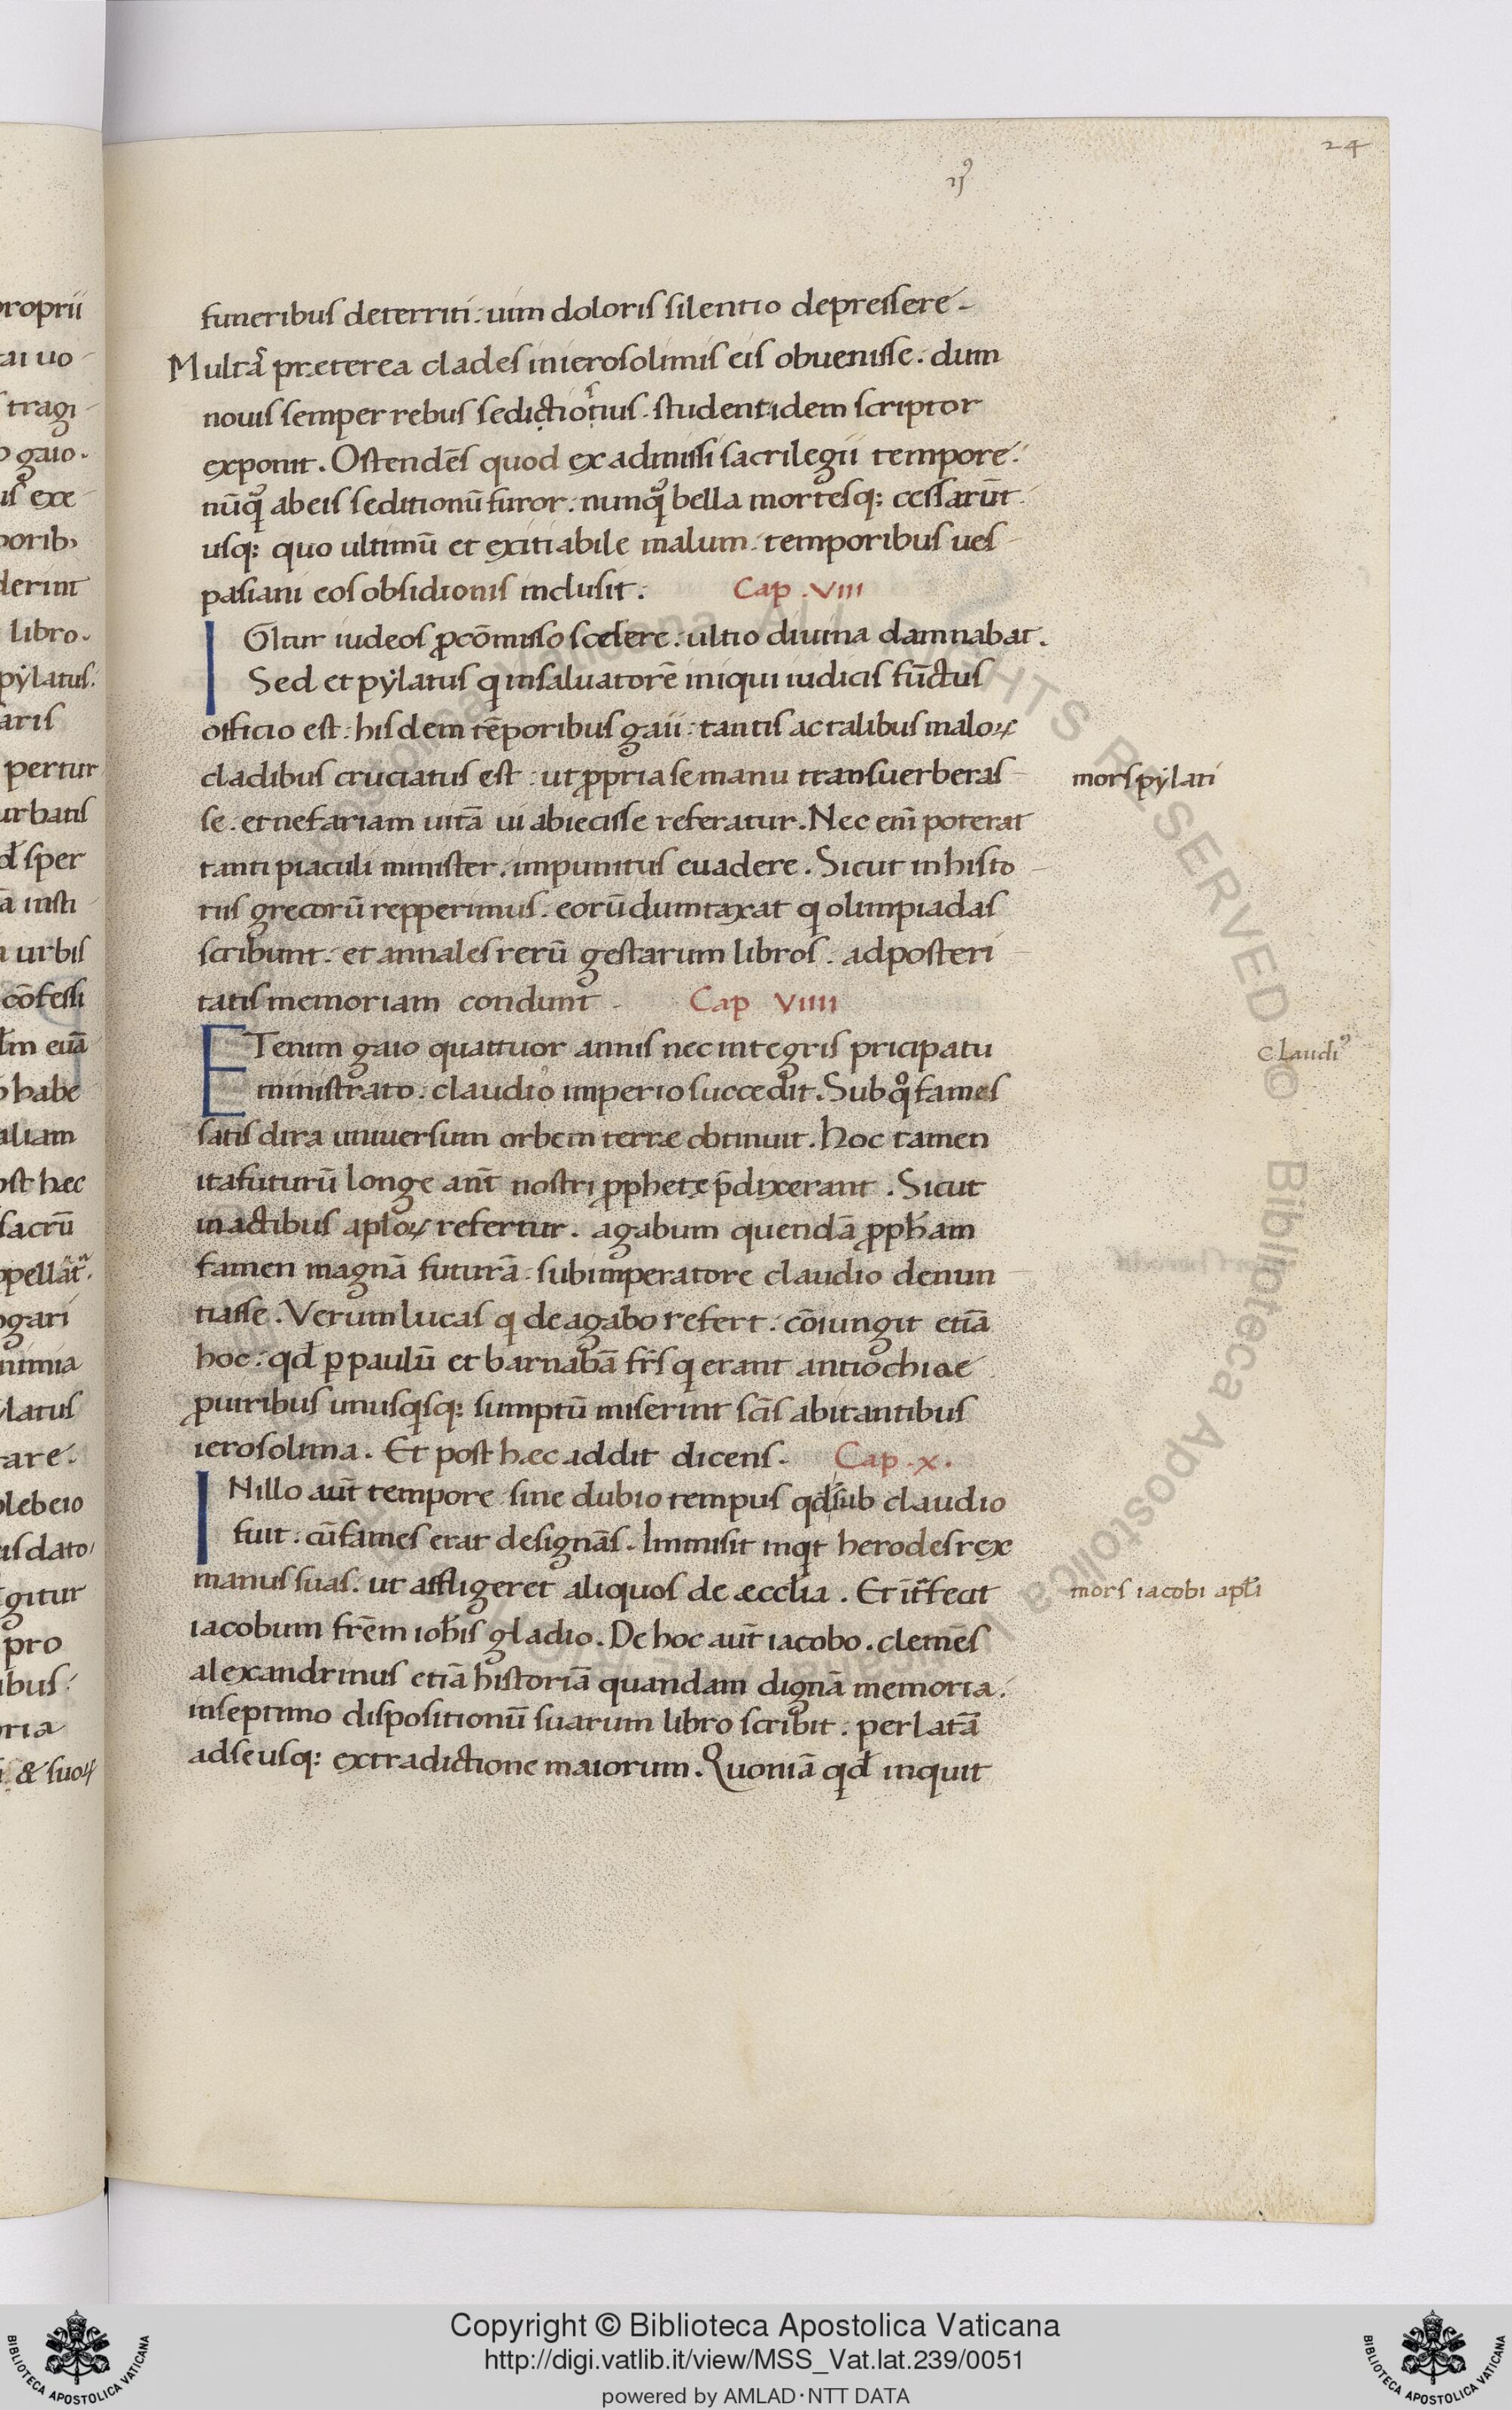 24
funeribus deterriti. uim doloris silentio depressere.
Multā præterea clades in ierosolimis eis obuenisse. dum
nouis semper rebus student idem scriptor
exponit. Ostendēs quod ex admissi sacrilegii tempore.
nūq̃ ab eis seditionū furor. nunq̃ bella mortesq; cessarūt.
usq; quo ultimū et exitiabile malum. temporibus ues-
pasiani eos obsidionis inclusit. Cap .VIII
IGItur iudeos ꝓ cōmisso scelere. ultio diuina damnabat.
Sed et pẏlatus q̇ in saluatorē iniqui iudicis fūctus
officio est. hisdem tēporibus gaii. tantis ac talibus maloꝝ
cladibus cruciatus est. ut ꝓpria se manu transuerberas-
se. et nefariam uitā ui abiecisse referatur. Nec eni᷒ poterat
tanti piaculi minister. impunitus euadere. Sicut in histo-
riis grecorū repperimus. eorū dumtaxat q̇ olimpiadas
scribunt. et annales rerū gestarum libros. ad posteri-
tatis memoriam condunt. Cap VIIII
ETenim gaio quattuor annis nec integris pricipatu
ministrato. claudio imperio succedit. Sub q̊ fames
satis dira uniuersum orbem terræ obtinuit. Hoc tamen
ita futurū longe ant̄ nostri ꝓphetę p̄dixerant. Sicut
in actibus apl̄oꝝ refertur. agabum quendā ꝓph̄am
famen magnā futurā. sub imperatore claudio denun-
tiasse. Verum lucas q̇ de agabo refert. cōiungit etiā
hoc. qđ p̱ paulū et barnabā fr̄s q̇ erant antiochiae
ꝓ uiribus unusq̇sq; sumptū miserint sc̄is abitantibus
ierosolima. Et post hæc addit dicens. Cap .X.
INillo aut̄ tempore sine dubio tempus qđ sub claudio
fuit. cū fames erat designās. Immisit inq̇t herodes rex
manus suas. ut affligeret aliquos de æccl̄ia. Et īt̄fecit
iacobum frēm ioh̄is gladio. De hoc aut̄ iacobo. clemēs
alexandrinus etiā historiā quandam dignā memoria.
in septimo dispositionū suarum libro scribit. perlatā
ad se usq; ex traditione maiorum. Quoniā qđ inquit
mors pẏlati
Claudi᷒
mors iacobi apl̄i
proprii
tai uo-
tragi-
gaio.
exe-
porib;
derint
libro.
pẏlatus.
aris
pertur
urbatis
sper
insti-
urbis
cōfessi
euā
habe
aliam
hæc
sacrū
ogari
nimia
ylatus
are.
plebeio
dato
gitur
pro
ibus
oria
& suoꝝ
Copyright © Biblioteca Apostolica Vaticana
http://digi.vatlib.it/view/MSS_Vat.lat.239/0051
powered by AMLAD·NTT DATA
BIBLIOTECA APOSTOLICA VATICANA
BIBLIOTECA APOSTOLICA VATICANA